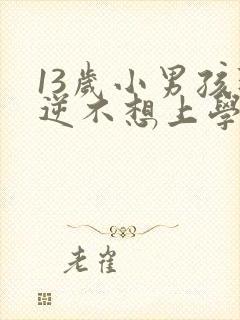 13歲小男孩
逆不想上學
老雀